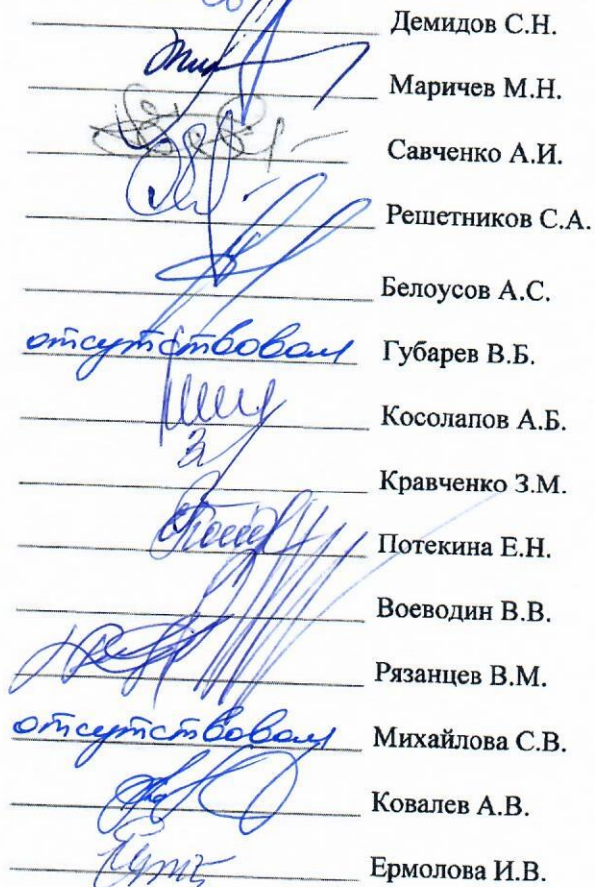 Демидов С.Н.
Маричев М.Н.
Савченко А.И.
Решетников С.А.
Белоусов А.С.
отсутствовал Губарев В.Б.
Косолапов А.Б.
Кравченко З.М.
Потекина Е.Н.
Воеводин В.В.
Рязанцев В.М.
отсутствовал Михайлова С.В.
Ковалев А.В.
Ермолова И.В.